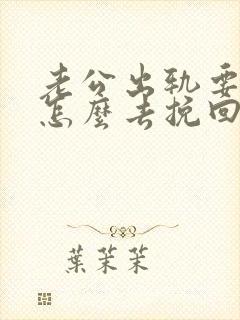 老公出轨要
怎麼去挽回
葉茉茉